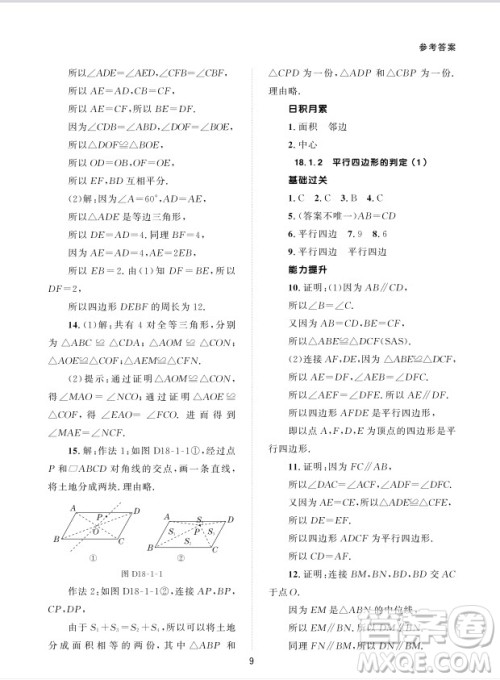 参考答案
所以∠ADE=∠AED=60°.
所以 AE=AD=4.
因为∠BAD=∠BCD,
所以△DOF≌△BOE.
所以 OD=OB.
所以 EF, BD 互相平分.
(2)解:因为∠A=60°, AE=AD,
所以△ADE 是等边三角形.
因为 AE=4, AE=2EB,
所以 EB=2. 由(1)知 DF=BE, 所以
DF=2,
所以四边形 DEBF 的周长为 12.
14. (1)解:共有 4 对全等三角形, 分别
为△ABC≌△CDA; △AOM≌△CON;
△AOE≌△COF; △AME≌△CNF.
(2)提示:通过证明△AOM≌△CON,
得∠MAO=∠NCO. 通过证明△AOE≌
△COF, 得∠EAO=∠FCO. 进而推得
∠MAE=∠NCF.
15. 解:作法 1:如图 D18-1-1①, 经过点
P 和□ABCD 对角线的交点, 画一条直线,
将土地分成两块. 理由略.
A D P O B C
①
A D P S₁ S₂ S₃ S₄ B C
②
图 D18-1-1
作法 2:如图 D18-1-1②, 连接 AP, BP,
CP, DP.
由于 S₁+S₂=S₃+S₄, 所以可以将土地
分成面积相等的两份, 其中△ABP 和
△CPD 为一份, △ADP 和△CBP 为一份.
理由略.
日积月累
1. 面积 邻边
2. 中心
18.1.2 平行四边形的判定(1)
基础过关
1. C 2. B 3. C 4. C
5. (答案不唯一)AB=CD
6. 平行四边形 7. 9 8. 6
9. 平行四边形 平行四边形
能力提升
10. 证明:(1)因为 AB∥CD,
所以∠B=∠C.
又因为 AB=CD, BE=CF,
所以△ABE≌△DCF(SAS).
(2)连接 AF, DE. 因为△ABE≌△DCF,
所以 AE=DF, ∠AEB=∠DFC.
所以∠AEF=∠DFE. 所以 AE∥DF.
所以四边形 AEDF 是平行四边形.
11. 证明:因为 CF∥AB,
所以∠DAC=∠ACF, ∠ADF=∠CFD.
又因为 EA=EC,
所以△ADE≌△CFE.
所以 AD=CF.
所以四边形 ADCF 为平行四边形.
所以 CD=AF.
12. 证明:连接 BM, BN, BD, BD 交 AC
于点 O.
因为 EM 是△ABN 的中位线,
所以 EM∥BN. 即 BN∥DM.
同理可证 BM∥DN.
9